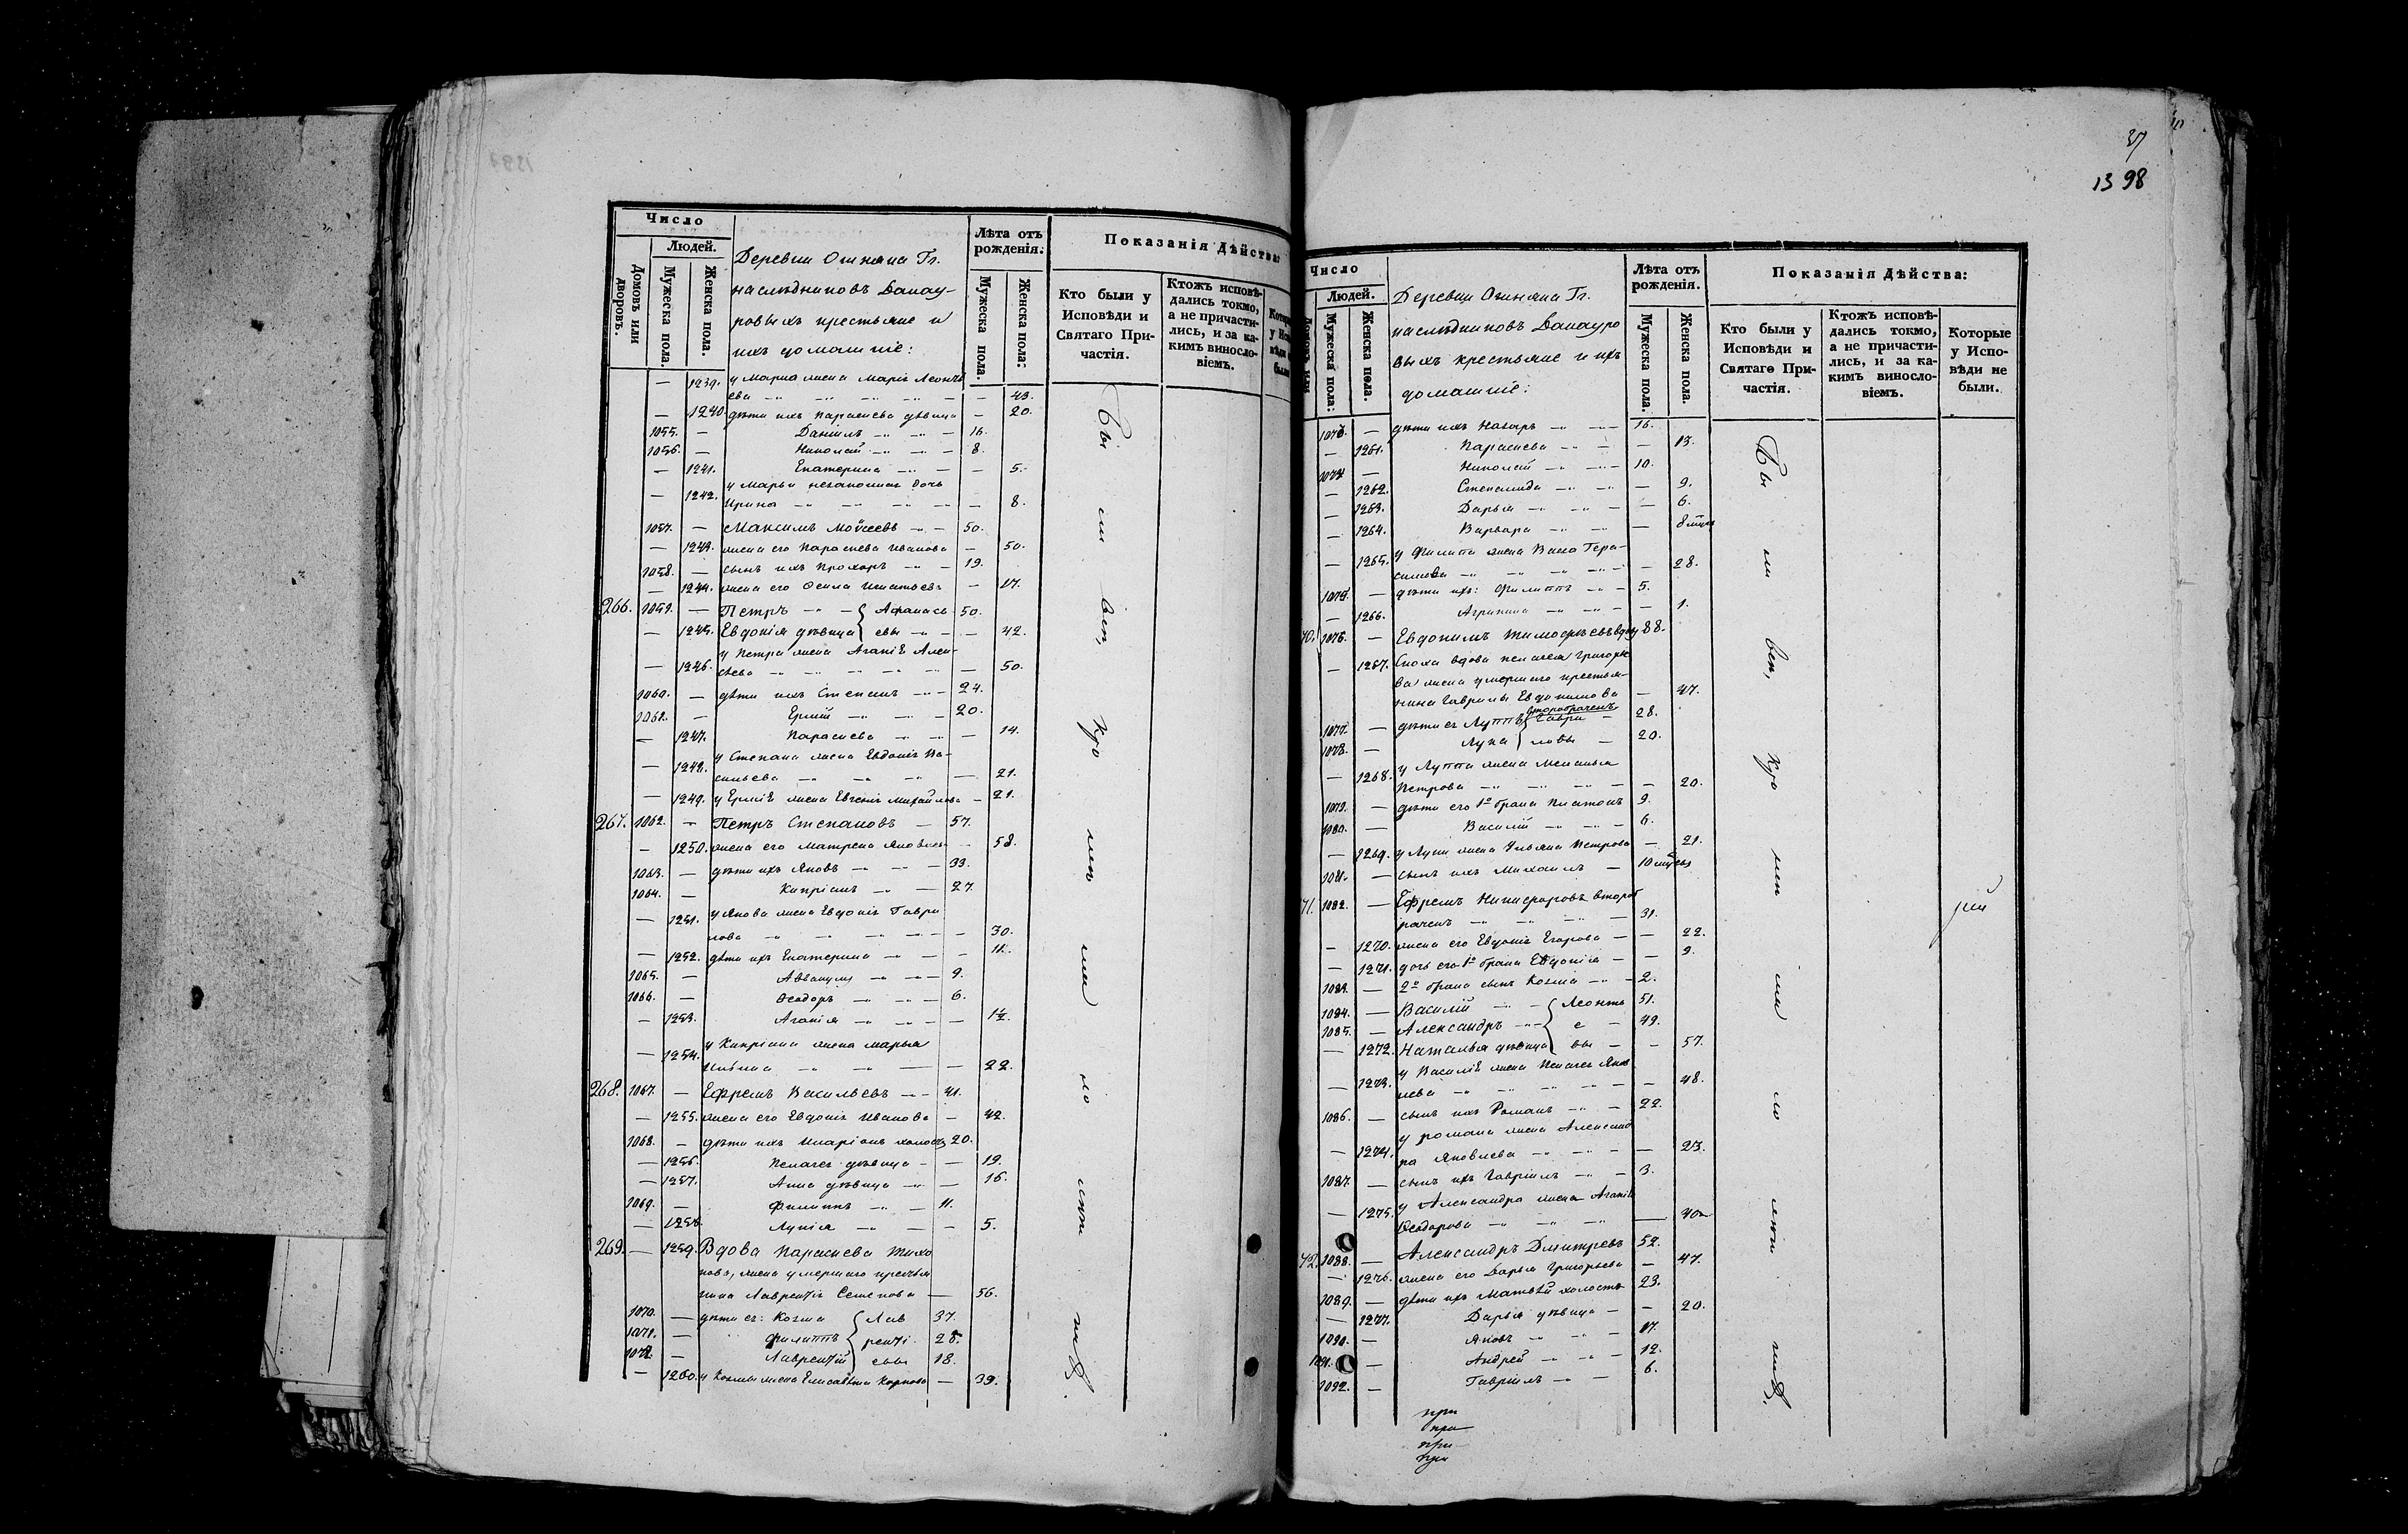 Число
Людей.
Домовъ или дворовъ.
Мужеска пола.
Женска пола.
Деревни Г.
наслѣдниковъ
ровыхъ крестьяне и
ихъ домашніе:
Лѣта отъ рожденія:
Мужеска пола.
Женска пола:
Показанія Дѣйства:
Кто были у Исповѣди и Святаго Причастія.
Ктожъ исповѣдались токмо, а не причастились, и за какимъ винословіемъ.
— 1239. у жена Марія Леонть
ева — 43.
— 1240. дѣти ихъ Параскева дѣвица — 20.
1055. — Даніилъ — 16.
1056. — Николай — 8.
— 1241. Екатерина — 5.
— 1242. у Марьи незаконная дочь
Ирина — 8.
1057. — Максимъ Моѵсеевъ — 50.
— 1243. жена его Параскева Иванова — 50.
1058. — сынъ ихъ Прохоръ — 19.
— 1244. жена его — 17.
266. 1059. — Петръ — Афанась 50.
— 1245. Евдокія дѣвица евы — 42.
— 1246. у Петра жена Агапія Алек
сѣева — 50.
1060. — дѣти ихъ Степанъ — 24.
1061. — Ермій — 20.
— 1247. Параскева — 14.
— 1248. у Степана жена Евдокія Ва-
сильева — 21.
— 1249. у Ермія жена Евгенія Михайлова — 21.
267. 1062. — Петръ Степановъ — 57.
— 1250. жена его Матрена Яковлева — 58.
1063. — дѣти ихъ Яковъ — 33.
1064. — Кипріанъ — 27.
— 1251. у Якова жена Евдокія Гаври
лова — 30.
— 1252. дѣти ихъ Екатерина — 11.
1065. — Аввакумъ — 9.
1066. — Ѳеодоръ — 6.
— 1253. Агапія — 1½.
— 1254. у Кипріана жена Марья
Ильина — 22.
268. 1067. — Ефремъ Васильевъ — 41.
— 1255. жена его Евдокія Иванова — 42.
1068. — дѣти ихъ Иларіонъ холостъ 20.
— 1256. Пелагея дѣвица — 19.
— 1257. Анна дѣвица — 16.
1069. — Филиппъ — 11.
— 1258. Лукія — 5.
269. — 1259. Вдова Параскева Тихо
нова, жена умершаго крестья
нина Лаврентія Семенова — 56.
1070. — дѣти ея: Козма Лав 37.
1071. — Филиппъ рентi 28.
1072. — Лаврентій евы 18.
— 1260. у Козмы жена Елисавета Карпова — 39.
37
1398
Число
Людей.
Мужеска пола:
Женска пола.
Деревни Г.
наслѣдниковъ
выхъ крестьяне и ихъ
домашніе:
Лѣта отъ рожденія.
Мужеска пола.
Женска пола.
Показанія Дѣйства:
Кто были у Исповѣди и Святаго Причастія.
Ктожъ исповѣдались токмо, а не причастились, и за какимъ винословіемъ.
Которые у Исповѣди не были.
1073. — дѣти ихъ Назаръ — 16.
— 1261. Параскева — 13.
1074. — Николай — 10.
— 1262. Степанида — 9.
— 1263. Дарья — 6.
— 1264. Варвара — 8
— 1265. у Филипа жена Васса Гера-
симова — 28.
1075. — дѣти ихъ: Филиппъ — 5.
— 1266. Агрипина — 1.
70. 1076. — Евдокимъ Тимофѣевъ вдовъ 88.
— 1267. Сноха вдова Пелагея Григорье
ва жена умершаго крестья-
нина Гаврилы Евдокимова — 47.
1077. — дѣти ея Луппъ второбраченъ Гаври — 28.
1078. — Лука ловы — 20.
— 1268. у Луппа жена Меланья
Петрова — 20.
1079. — дѣти его 1го брака Платонъ 9.
1080. — Василій — 6.
— 1269. у Луки жена Ульяна Петрова — 21.
1081. — сынъ ихъ Михаилъ — 10
71. 1082. — Ефремъ Никифоровъ второб
раченъ — 31.
— 1270. жена его Евдокія Егорова — 22.
— 1271. дочь его 1го брака Евдокія — 9.
1083. — 2го брака сынъ Козма — 2.
1084. — Василій — Леонть 51.
1085. — Александръ — е — 49.
— 1272. Наталья дѣвица вы — 57.
— 1273. у Василія жена Пелагея Яков
лева — 48.
1086. — сынъ ихъ Романъ — 22.
— 1274. у Романа жена Александ
ра Яковлева — 23.
1087. — сынъ ихъ Гавріилъ — 3.
— 1275. у Александра жена Агапія
Ѳеодорова — 40
72. 1088. — Александръ Дмитревъ 52.
— 1276. жена его Дарья Григорьева — 47.
1089. — дѣти ихъ Матвѣй холостъ 23.
— 1277. Дарья дѣвица — 20.
1090. — Яковъ — 17.
1091. — Андрей — 12.
1092. — Гавріилъ — 6.
при
при
при
при